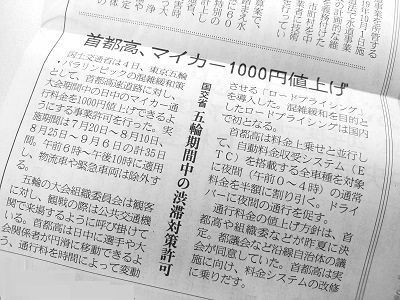 首都高、マイカー1000円値上げ
国交省 五輪期間中の渋滞対策許可
国土交通省は4日、東京五輪
・パラリンピックの混雑緩和策
として、首都高速道路に対し、
大会期間中の日中のマイカー通
行料金を1000円値上げできるよ
うにする事業許可を行った。実
施期間は7月20日～8月10日、
8月25日～9月6日の計35日
間。午前6時～午後10時に適用
し、物流車や緊急車両は除外す
る。
五輪の大会組織委員会は観客
に対し、観戦の際は公共交通機
関で来場するように呼び掛けて
いる。首都高は日中に選手や大
会関係者が円滑に移動できるよ
う、通行料を時間によって変動
させる「ロードプライシング」
を導入した。混雑緩和を目的と
したロードプライシングは国内
で初となる。
首都高は料金上乗せと並行し
て、自動料金収受システム(E
TC)を搭載する全車種を対象
に夜間(午前0～4時)の通常
料金を半額に割り引く。ドライ
バーに夜間の通行を促す。
通行料金の値上げ方針は、首
都高や組織委などが昨夏に決
定。都議会など沿線自治体の議
会が同意していた。首都高は実
施に向け、料金システムの改修
に乗りだす。